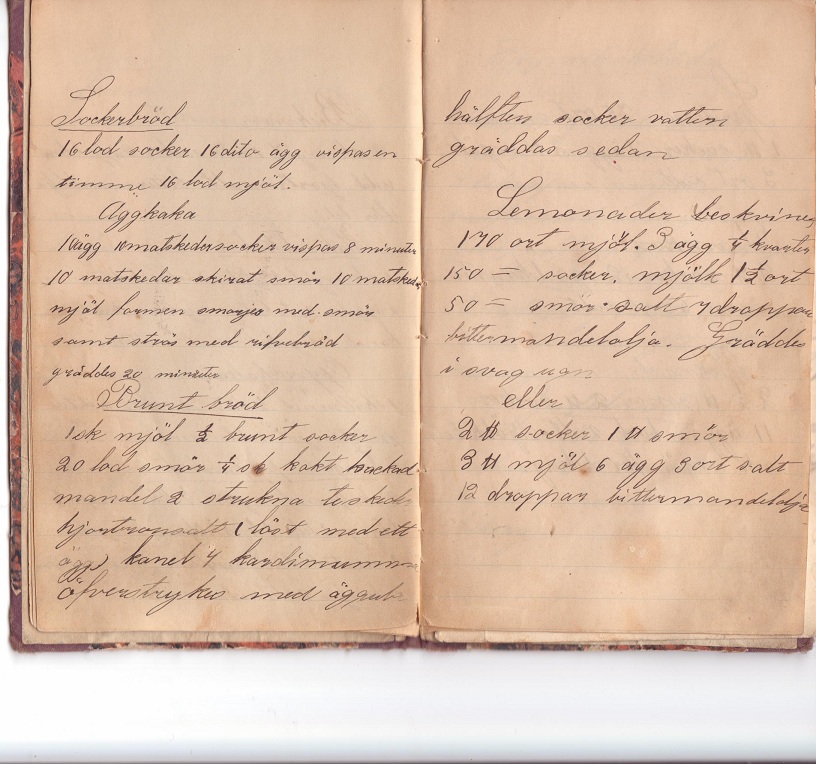 Sockerbröd
16 lod socker 16 dito ägg vispas en
timme 16 lod mjöl.
Äggkaka
10 ägg 10 matskedar socker vispas 8 minuter
10 matskedar skirat smör 10 matskedar
mjöl formen smörjes med smör
samt strös med rifvebröd
gräddes 20 minuter
Brunt bröd
1 sk mjöl ½ brunt socker
20 lod smör ¼ sk kokt hackad
mandel 2 strukna tesked
hjortronsalt (löst med ett
ägg) kanel 4 kardimumm
öfverstrykes med ägg
hälften socker vatten
gräddas sedan
Lemonader beskvines
170 ort mjöl. 3 ägg ¼ kvarter
150 = socker. mjölk 1½ ort
50 = smör. salt 7 droppar
bittermandelolja. Gräddes
i svag ugn
eller
2 ℔ socker 1 ℔ smör
3 ℔ mjöl 6 ägg 3 ort salt
12 droppar bittermandelolja